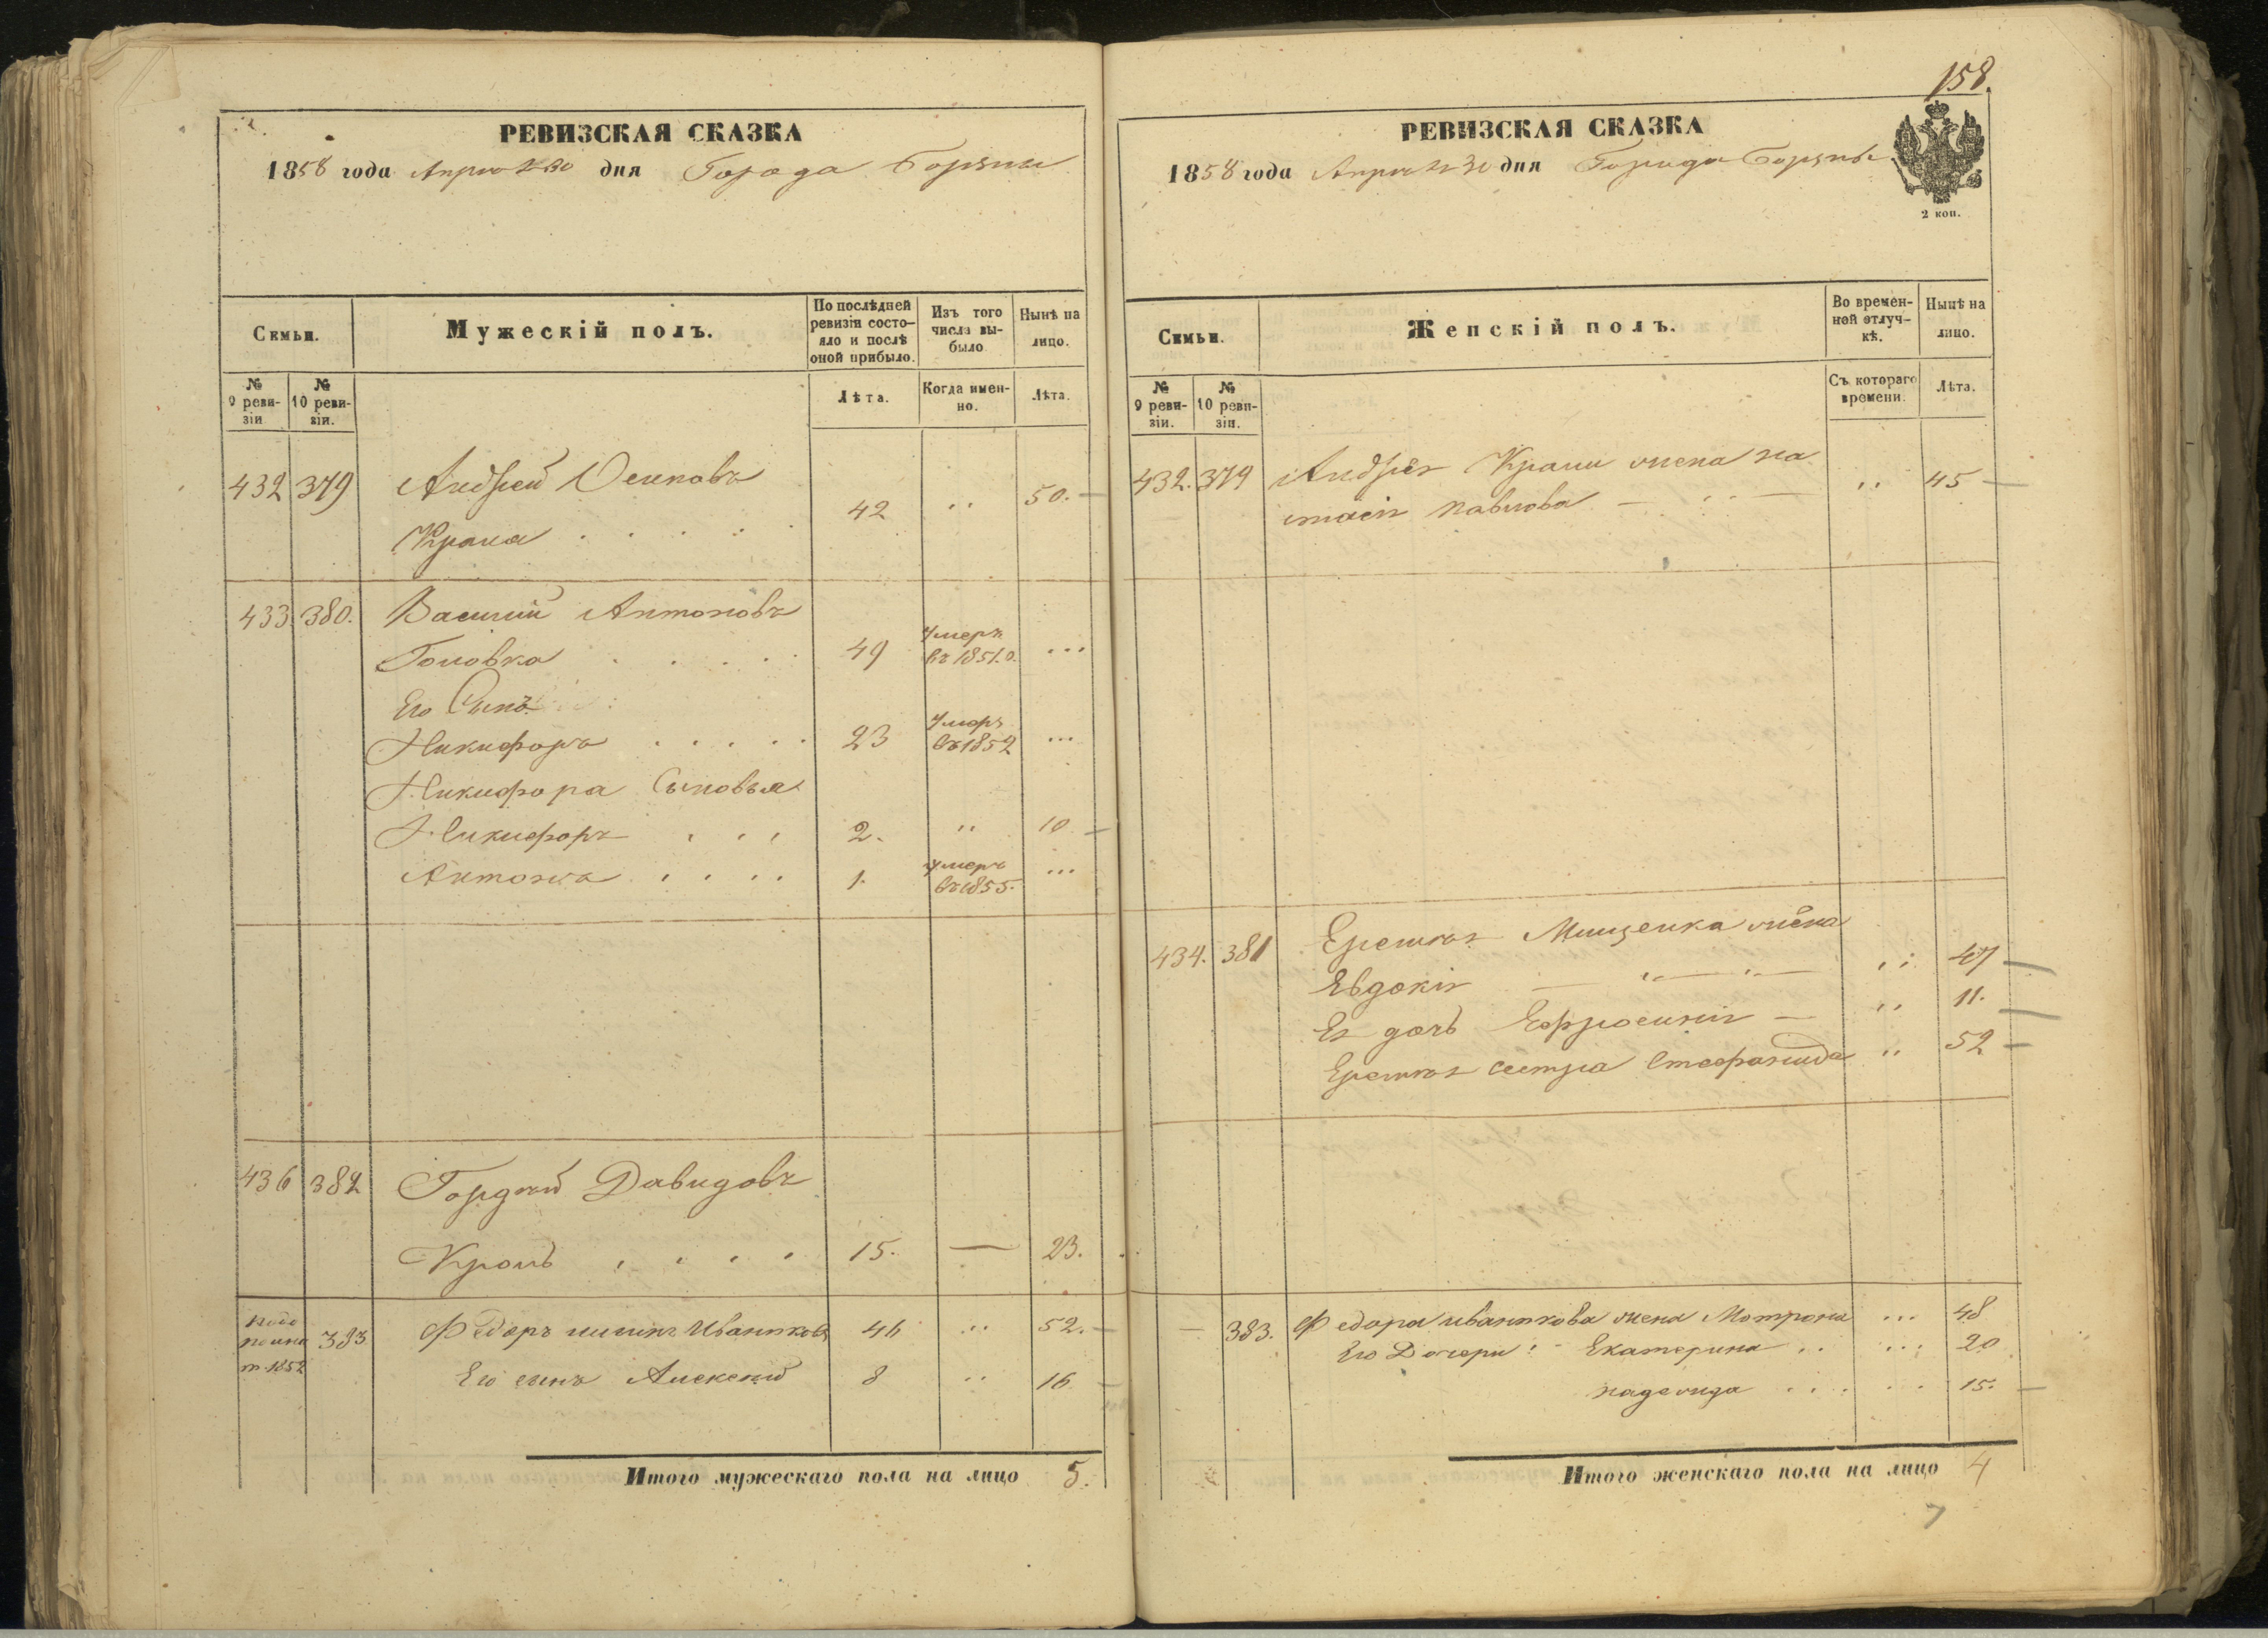 РЕВИЗСКАЯ СКАЗКА
1858 года Апреля 30 дня Города Борзны
Семьи.
Мужескій полъ.
По послѣдней ревизіи состо-
яло и послѣ
оной прибыло.
Изъ того
числа вы-
было
Нынѣ на
лицо.
№
9 реви-
зіи
№
10 реви-
зіи.
Лѣта.
Когда имен-
но.
Лѣта.
432 379 Андрей Осиповъ
Крапа 42 " 50.
433 380. Василий Антоновъ
Головка 49 умеръ въ 1851. ...
Его Сынъ
Никифоръ 23 умеръ въ 1852 ...
Никифора Сыновья
Никифоръ 2. " 10
Антонъ 1. умеръ въ 1855. ...
436 382 Гордѣй Давидовъ
Кроль 15. — 23.
1852 383 Федоръ Иваньковъ 46 " 52.
Его сынъ Алексѣй 8 " 16
Итого мужескаго пола на лицо 5.
158.
РЕВИЗСКАЯ СКАЗКА
1858 года Апреля 30 дня Города Борзны
2 коп.
Семьи.
Женскій полъ.
Во времен-
ной отлуч-
кѣ.
Нынѣ на
лицо.
№
9 реви-
зіи.
№
10 реви-
зіи.
Съ котораго
времени.
Лѣта.
432. 379 Андрея Крапи жена На
стасія Павлова " 45
434. 381 Мищенка жена
Евдокія " 47
Ея дочь Ефросинія — " 11.
сестра Стефанида " 52
— 383. Федора Иванькова жена Мотрона ... 48
Его Дочери: Екатерина ... 20
Надежда ... 15.
Итого женскаго пола на лицо 4
7